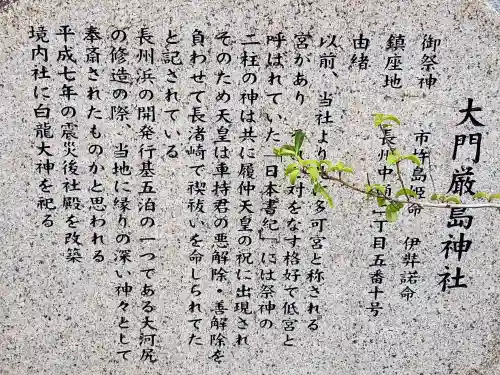 大門厳島神社
御祭神　市杵島姫命　伊弉諾命
鎮座地　長州中　丁目五番十号
由緒
以前、当社より　多可宮と称される
宮があり　対をなす格好で低宮と
呼ばれていた「日本書紀」には祭神の
二柱の神は共に履仲天皇の祝に出現され
そのため天皇は車持君の悪解除・善解除を
負わせて長渚崎で禊祓いを命じられてた
と記されている
長州浜の開発行基五泊の一つである大河尻
の修造の際、当地に縁りの深い神々として
奉斎されたものかと思われる
平成七年の震災後社殿を改築
境内社に白龍大神を祀る